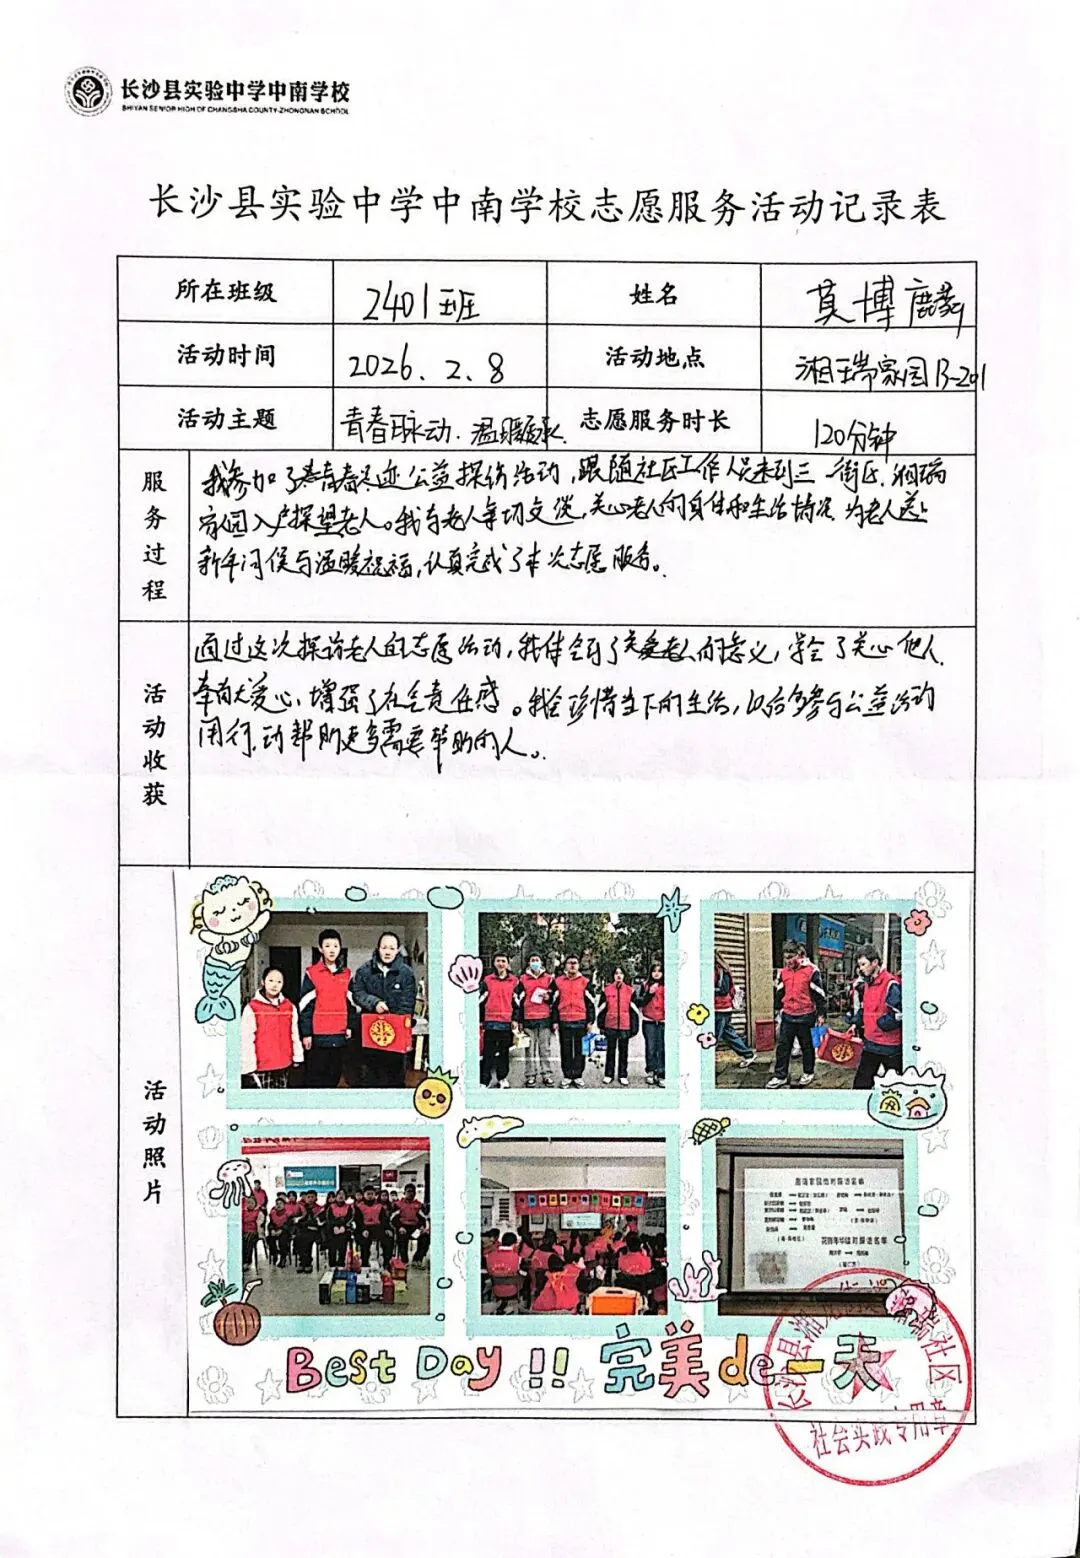 长沙县实验中学中南学校
SHIYAN SENIOR HIGH OF CHANGSHA COUNTY-ZHONGNAN SCHOOL
长沙县实验中学中南学校志愿服务活动记录表
所在班级 2401班 姓名 莫博麟
活动时间 2026.2.8 活动地点 湘瑞家园B-201
活动主题 青春脉动.温暖 志愿服务时长 120分钟
服务过程
我参加了青春足迹公益探访活动，跟随社区工作人员来到三一街区.湘瑞
家园入户探望老人。我与老人亲切交谈，关心老人的身体和生活情况 为老人送上
新年问候与温暖祝福，认真完成了本次志愿服务。
活动收获
通过这次探访老人的志愿活动，我体会到了关爱老人的意义，学会了关心他人.
奉献爱心，增强了社会责任感。我会珍惜当下的生活，以后多参与公益活动
用行动帮助更多需要帮助的人。
活动照片
Best Day!! 完美de一天
长沙县湘 社区
社会实践专用章